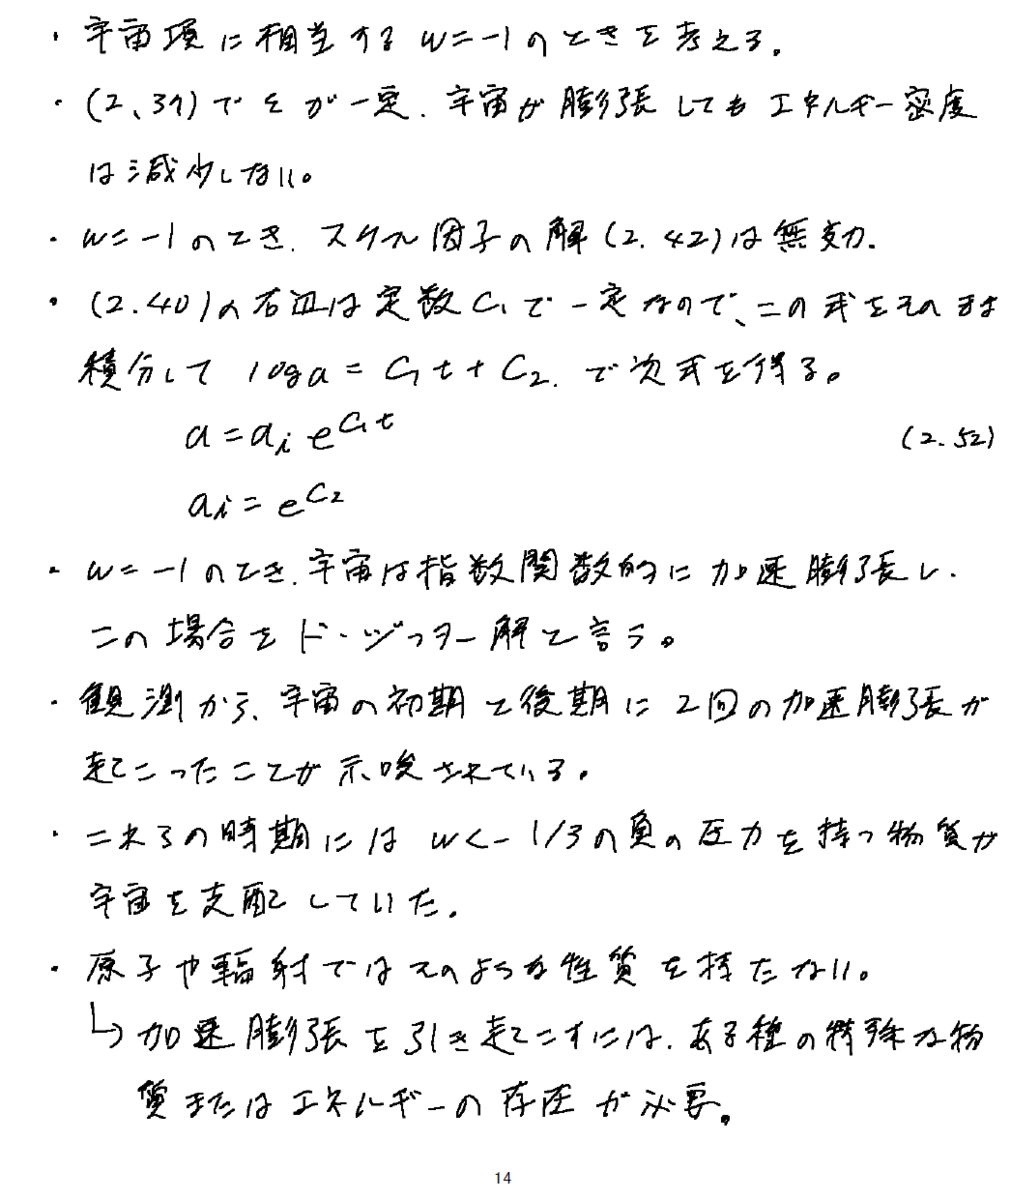 ・宇宙項に相当する w=-1のときを考える。
・(2、39)でεが一定.宇宙が膨張してもエネルギー密度
は減少しない。
・w=-1のとき.スケール因子の解(2.42)は無効.
・(2.40)の右辺は定数C₁で一定なので、この式をそのまま
積分して log a = C₁t + C₂.で次式を得る。
a = aᵢ e^{C₁t} (2.52)
aᵢ = e^{C₂}
・w=-1のとき.宇宙は指数関数的に加速膨張し.
この場合をド・ジッター解と言う。
・観測から、宇宙の初期と後期に2回の加速膨張が
起こったことが示唆されている。
・これらの時期には w<-1/3の負の圧力を持つ物質が
宇宙を支配していた。
・原子や輻射ではそのような性質を持たない。
↳加速膨張を引き起こすには.ある種の特殊な物
質またはエネルギーの存在が必要。
14